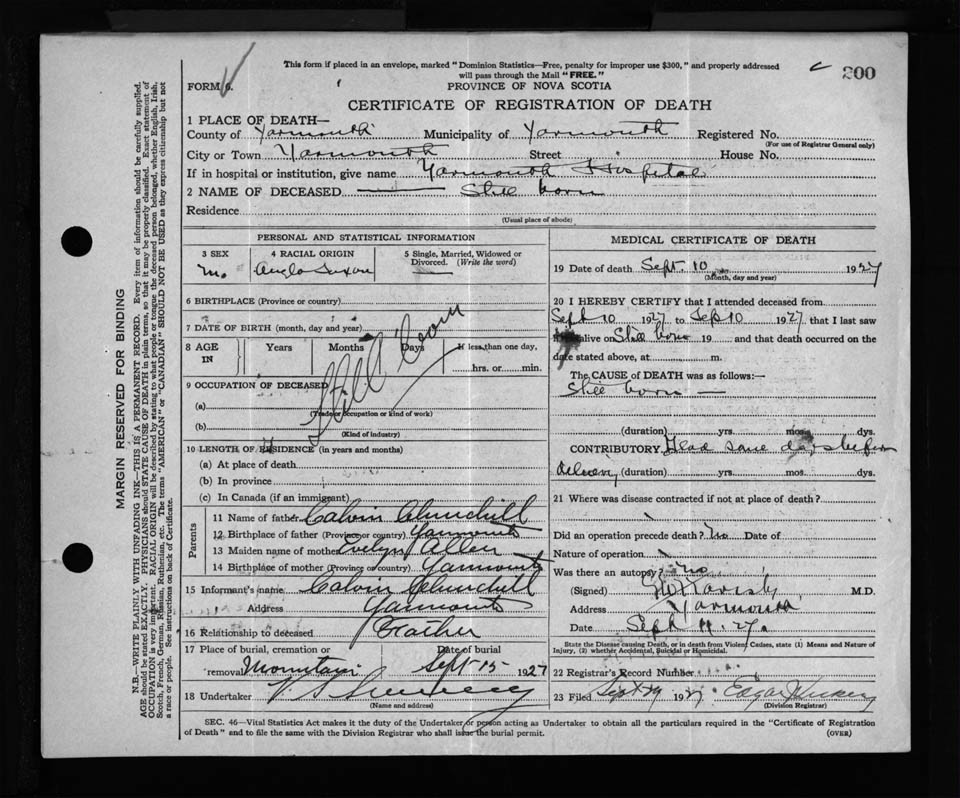 This form if placed in an envelope, marked "Dominion Statistics—Free, penalty for improper use $300," and properly addressed
will pass through the Mail "FREE."
200
FORM 6.
PROVINCE OF NOVA SCOTIA
CERTIFICATE OF REGISTRATION OF DEATH
1 PLACE OF DEATH—
County of Yarmouth Municipality of Yarmouth Registered No.
(For use of Registrar General only)
City or Town Yarmouth Street House No.
If in hospital or institution, give name Yarmouth Hospital
2 NAME OF DECEASED Still born
Residence
(Usual place of abode)
PERSONAL AND STATISTICAL INFORMATION
3 SEX 4 RACIAL ORIGIN 5 Single, Married, Widowed or
Divorced. (Write the word)
M. Anglo Saxon
6 BIRTHPLACE (Province or country)
7 DATE OF BIRTH (month, day and year)
8 AGE IN Years Months Days If less than one day,
hrs. or min.
Still Born
9 OCCUPATION OF DECEASED
(a)
(Trade or occupation or kind of work)
(b)
(Kind of industry)
10 LENGTH OF RESIDENCE (in years and months)
(a) At place of death
(b) In province
(c) In Canada (if an immigrant)
Parents
11 Name of father Calvin Churchill
12 Birthplace of father (Province or country) Yarmouth
13 Maiden name of mother Evelyn Allen
14 Birthplace of mother (Province or country) Yarmouth
15 Informant's name Calvin Churchill
Address Yarmouth
16 Relationship to deceased Father
17 Place of burial, cremation or Date of burial
removal Mountain Sept 15 1927
18 Undertaker
(Name and address)
MEDICAL CERTIFICATE OF DEATH
19 Date of death Sept. 10 1927
(Month, day and year)
20 I HEREBY CERTIFY that I attended deceased from
Sept 10 1927 to Sep 10 1927 that I last saw
alive on Still born 19 and that death occurred on the
date stated above, at m.
The CAUSE of DEATH was as follows:—
Still born —
(duration) yrs. mos. dys.
CONTRIBUTORY Dead some days before
delivery (duration) yrs. mos. dys.
21 Where was disease contracted if not at place of death?
Did an operation precede death? No Date of
Nature of operation
Was there an autopsy? No
(Signed) M.D.
Address Yarmouth
Date Sept 11. 27
State the Disease causing Death, or in death from Violent Causes, state (1) Means and Nature of
Injury, (2) whether Accidental, Suicidal or Homicidal.
22 Registrar's Record Number
23 Filed Sept 29 1927 Edgar
(Division Registrar)
SEC. 46—Vital Statistics Act makes it the duty of the Undertaker or person acting as Undertaker to obtain all the particulars required in the "Certificate of Registration
of Death" and to file the same with the Division Registrar who shall issue the burial permit.
(OVER)
MARGIN RESERVED FOR BINDING
N.B.—WRITE PLAINLY WITH UNFADING INK—THIS IS A PERMANENT RECORD. Every item of information should be carefully supplied.
AGE should be stated EXACTLY. PHYSICIANS should STATE CAUSE OF DEATH in plain terms, so that it may be properly classified. Exact statement of
OCCUPATION is very important. RACIAL ORIGIN will be described by stating to what people or tongue the deceased person belonged, whether English, Irish,
Scotch, French, German, Russian, Ruthenian, etc. The terms "AMERICAN" or "CANADIAN" SHOULD NOT BE USED as they express citizenship but not
a race or people. See instructions on back of Certificate.